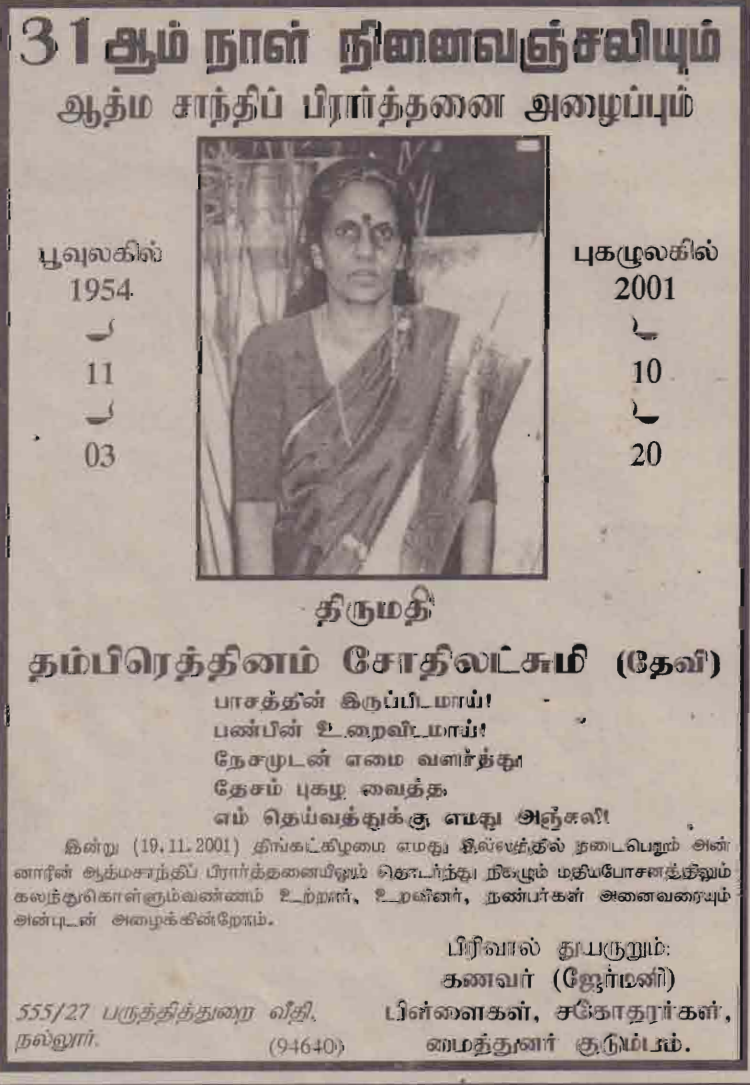 31ஆம் நாள் நினைவஞ்சலியும்
ஆத்ம சாந்திப் பிரார்த்தனை அழைப்பும்
பூவுலகில்
1954
11
03
புகழுலகில்
2001
10
20
திருமதி
தம்பிரெத்தினம் சோதிலட்சுமி (தேவி)
பாசத்தின் இருப்பிடமாய்!
பண்பின் உறைவிடமாய்!
நேசமுடன் எமை வளர்த்து
தேசம் புகழ வைத்த
எம் தெய்வத்துக்கு எமது அஞ்சலி!
இன்று (19.11.2001) திங்கட்கிழமை எமது இல்லத்தில் நடைபெறும் அன்
னாரின் ஆத்மசாந்திப் பிரார்த்தனையிலும் தொடர்ந்து நிகழும் மதியபோசனத்திலும்
கலந்துகொள்ளும்வண்ணம் உற்றார், உறவினர், நண்பர்கள் அனைவரையும்
அன்புடன் அழைக்கின்றோம்.
பிரிவால் துயருறும்:
கணவர் (ஜேர்மனி)
பிள்ளைகள், சகோதரர்கள்,
மைத்துனர் குடும்பம்.
555/27 பருத்தித்துறை வீதி,
நல்லூர்.
(94640)